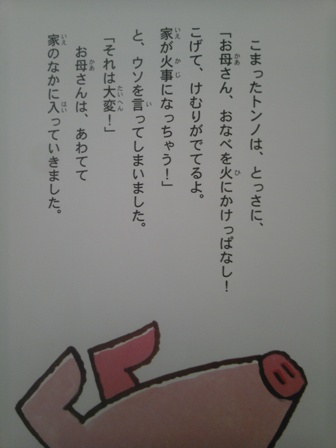 こまったトンノは、とっさに、
「お母さん、おなべを火にかけっぱなし！
こげて、けむりがでてるよ。
家が火事になっちゃう！」
と、ウソを言ってしまいました。
「それは大変！」
お母さんは、あわてて
家のなかに入っていきました。